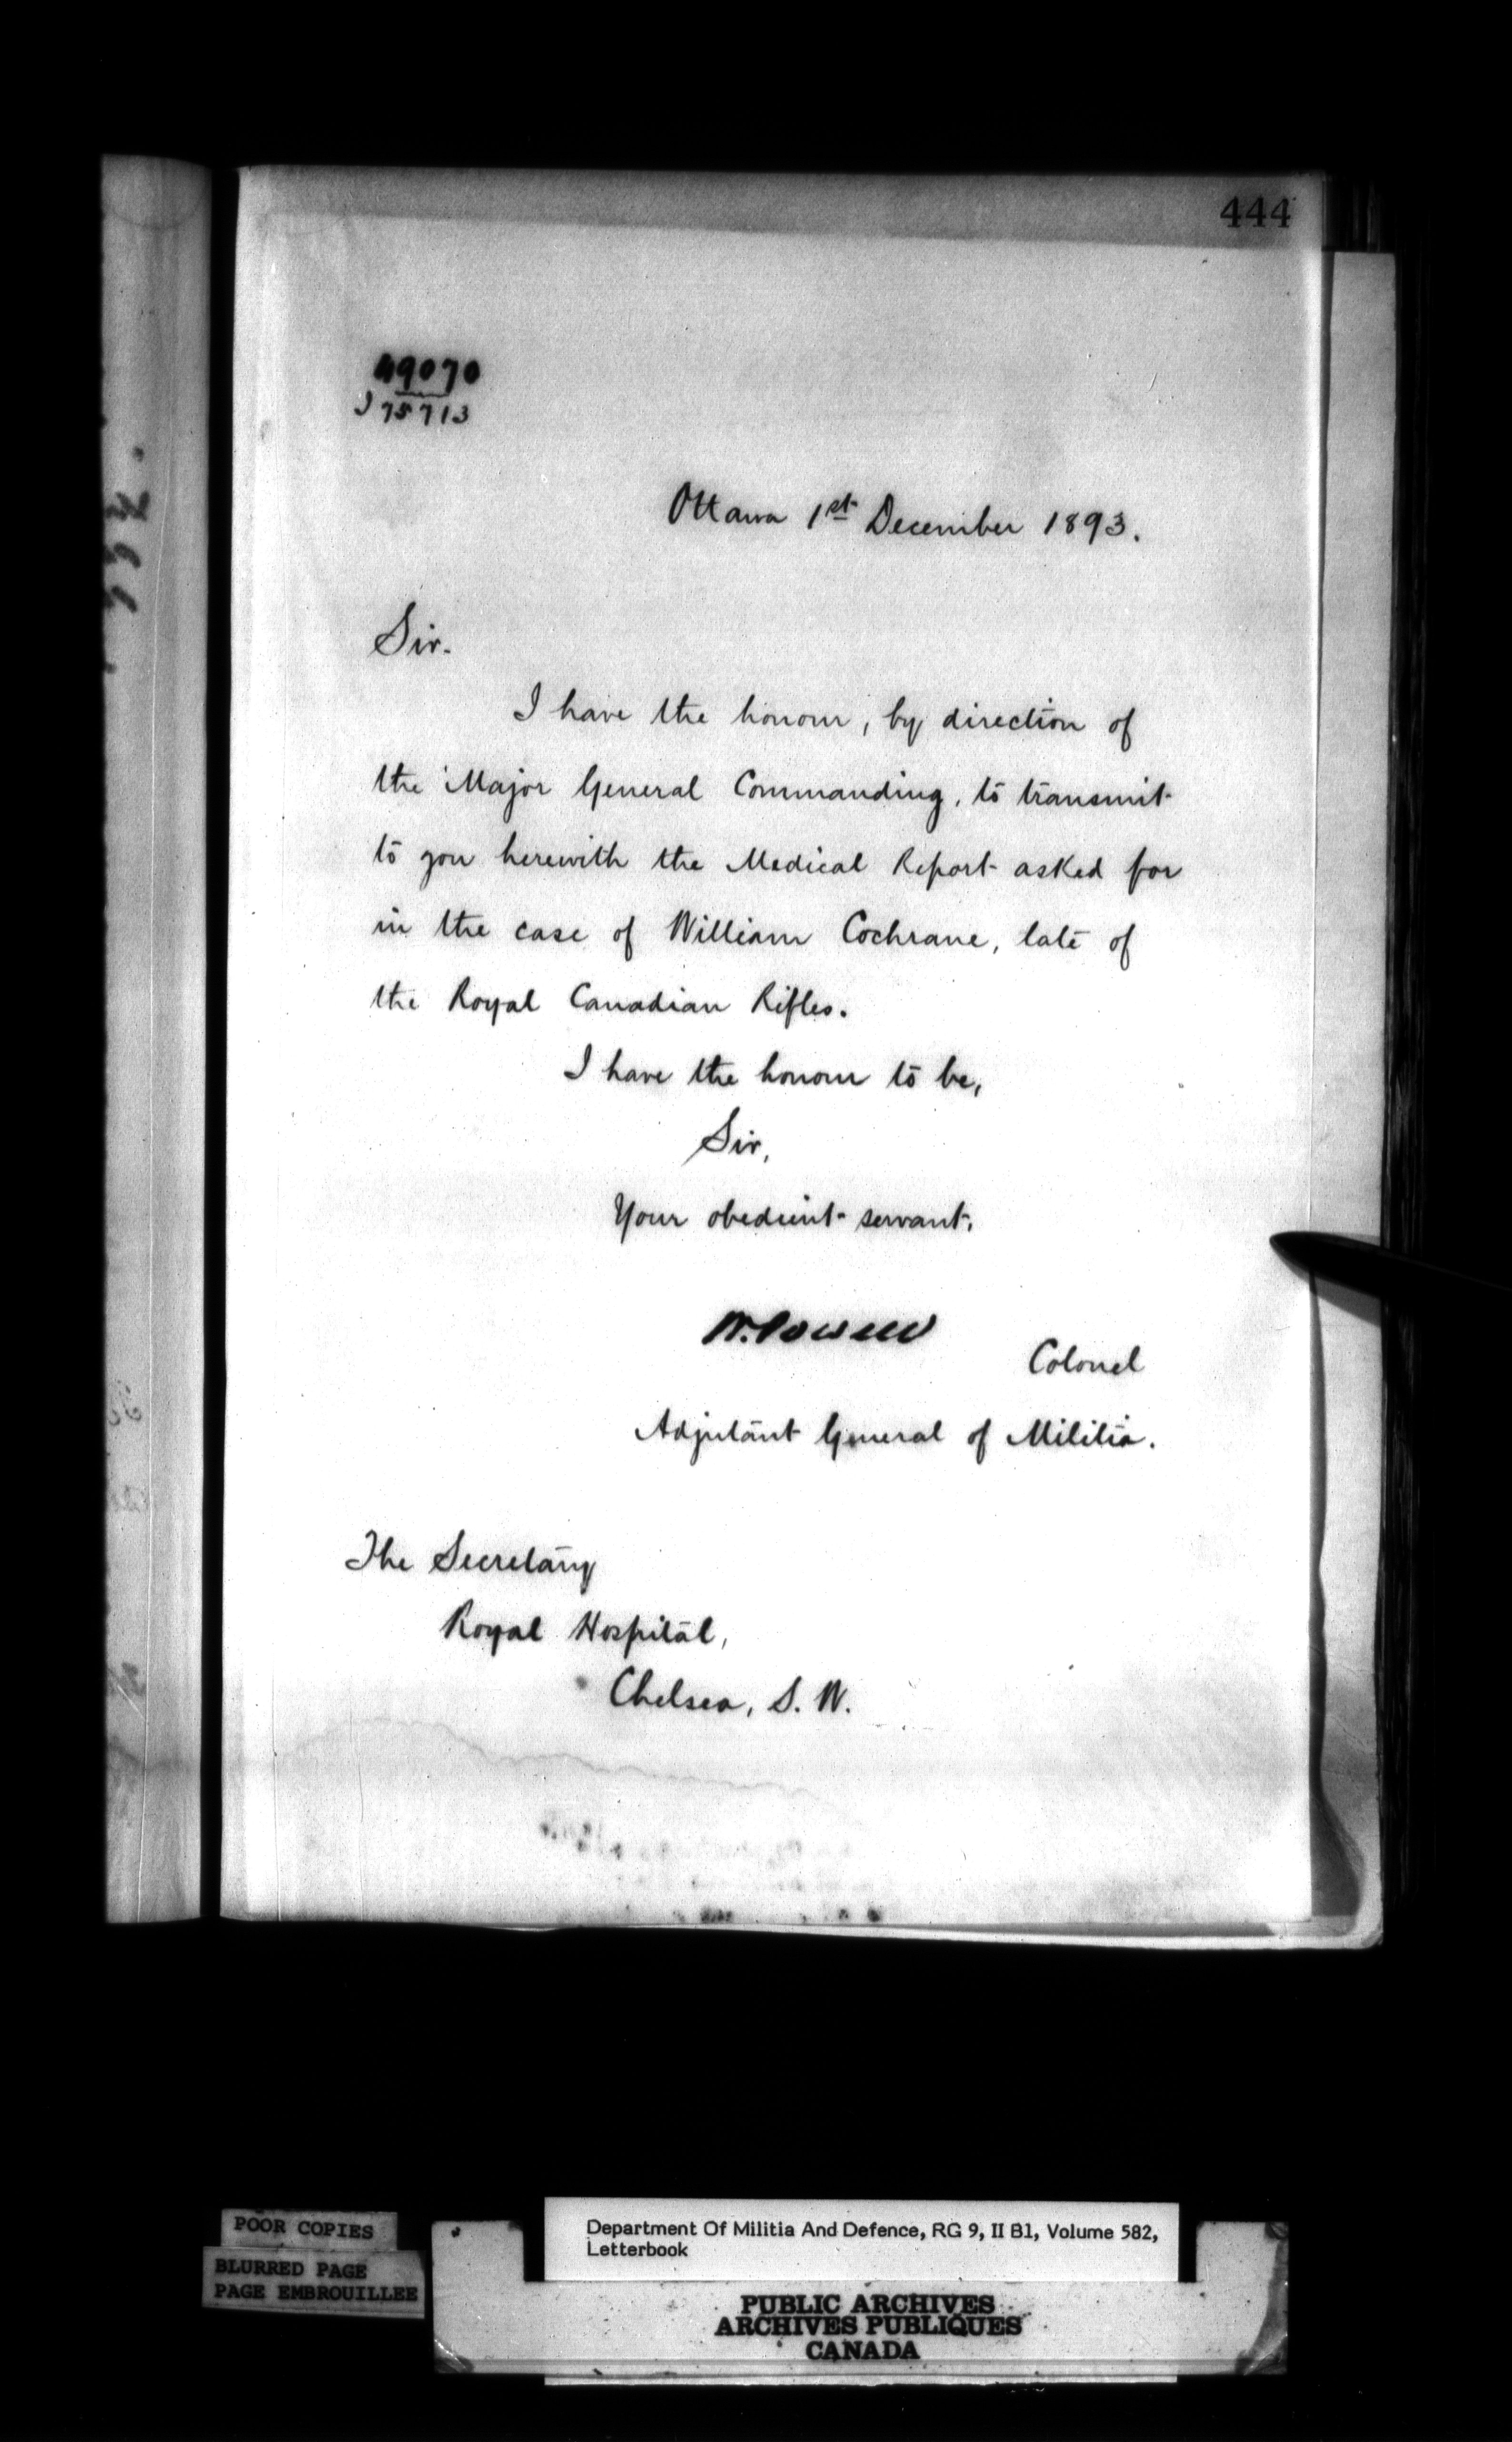 444
49070
J 75713
Ottawa 1st December 1893.
Sir.
I have the honour, by direction of
the Major General Commanding, to transmit
to you herewith the Medical Report asked for
in the case of William Cochrane, late of
the Royal Canadian Rifles.
I have the honour to be,
Sir,
Your obedient servant.
W. Powell
Colonel
Adjutant General of Militia.
The Secretary
Royal Hospital,
Chelsea, S. W.
POOR COPIES
BLURRED PAGE
PAGE EMBROUILLEE
Department Of Militia And Defence, RG 9, II B1, Volume 582,
Letterbook
PUBLIC ARCHIVES
ARCHIVES PUBLIQUES
CANADA